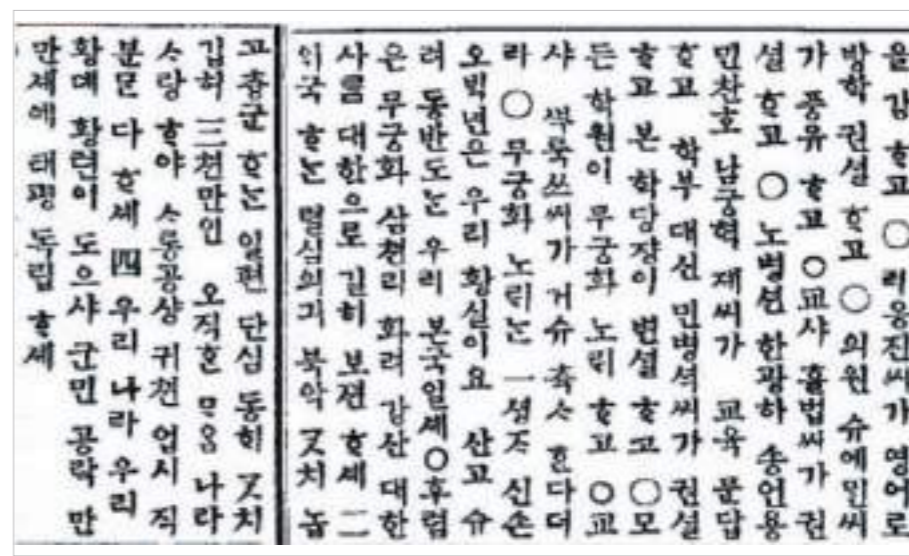 을 강 ᄒᆞ고 ○ 리응진씨가 영어로
방학 권설 ᄒᆞ고 ○ 의원 슈에민씨
가 풍류 ᄒᆞ고 ○교샤 흘법씨가 권
설 ᄒᆞ고 ○ 노병션 한광하 송언용
민찬호 남궁혁 재씨가 교육 문답
ᄒᆞ고 학부 대신 민병셕씨가 권설
ᄒᆞ고 본 학당쟝이 변설 ᄒᆞ고 ○모
든 학원이 무궁화 노ᄅᆡ ᄒᆞ고 ○교
샤 ᄲᅮ룩쓰씨가 거슈 츅ᄉᆞ ᄒᆞᆫ다더
라 ○ 무궁화 노ᄅᆡᄂᆞᆫ 一 셩ᄌᆞ 신손
오ᄇᆡᆨ년은 우리 황실이요 산고 슈
려 동반도ᄂᆞᆫ 우리 본국일셰 ○후렴
은 무궁화 삼쳔리 화려 강산 대한
사ᄅᆞᆷ 대한으로 길히 보젼 ᄒᆞ셰 二
ᄋᆡ국 ᄒᆞᄂᆞᆫ 렬심의긔 북악 ᄀᆞᆺ치 놉
고 츙군 ᄒᆞᄂᆞᆫ 일편 단심 동ᄒᆡ ᄀᆞᆺ치
깁허 三 쳔만인 오직 ᄒᆞᆫ ᄆᆞᄋᆞᆷ 나라
ᄉᆞ랑 ᄒᆞ야 ᄉᆞ롱공샹 귀쳔 업시 직
분문 다 ᄒᆞ셰 四 우리 나라 우리
황뎨 황텬이 도으샤 군민 공락 만
만셰에 태평 독립 ᄒᆞ셰